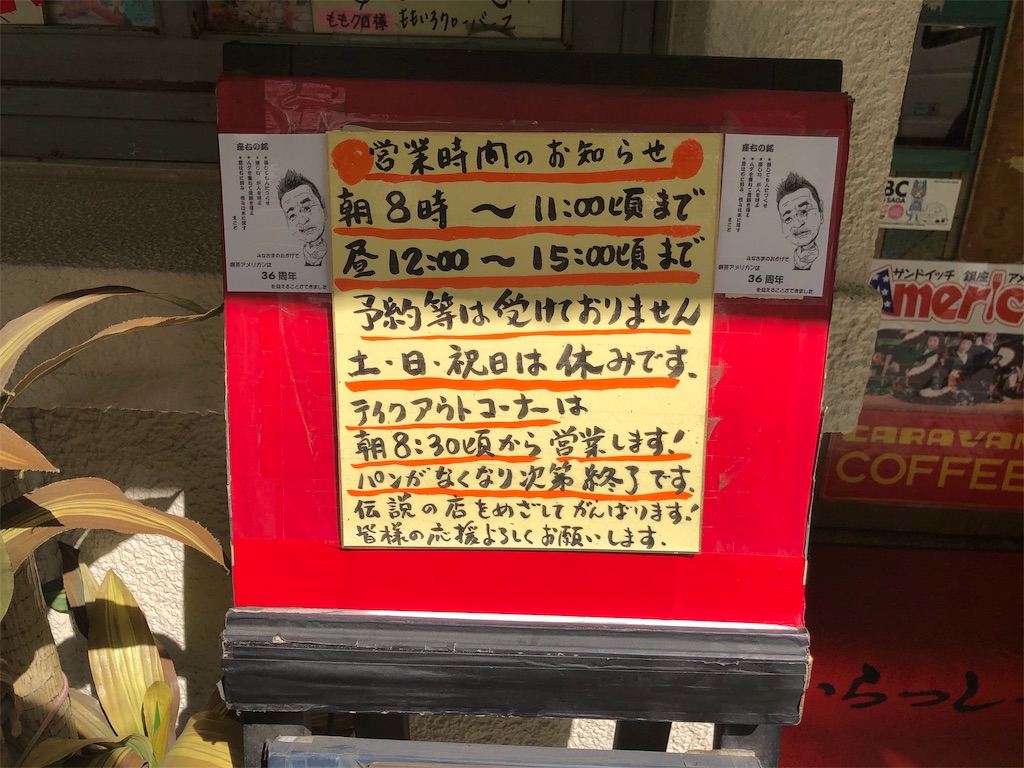 ももクロ様 ももいろクローバーZ
営業時間のお知らせ
朝8時〜11:00頃まで
昼12:00〜15:00頃まで
予約等は受けておりません
土・日・祝日は休みです.
テイクアウトコーナーは
朝8:30頃から営業します!
パンがなくなり次第終了です.
伝説の店をめざしてがんばります!
皆様の応援よろしくお願いします.
座右の銘
みなさまのおかげで
銀座アメリカンは
36周年
を迎えることができました
座右の銘
みなさまのおかげで
銀座アメリカンは
36周年
を迎えることができました
サンドイッチ 銀座
Americ
CARAVAN
COFFEE
いらっし